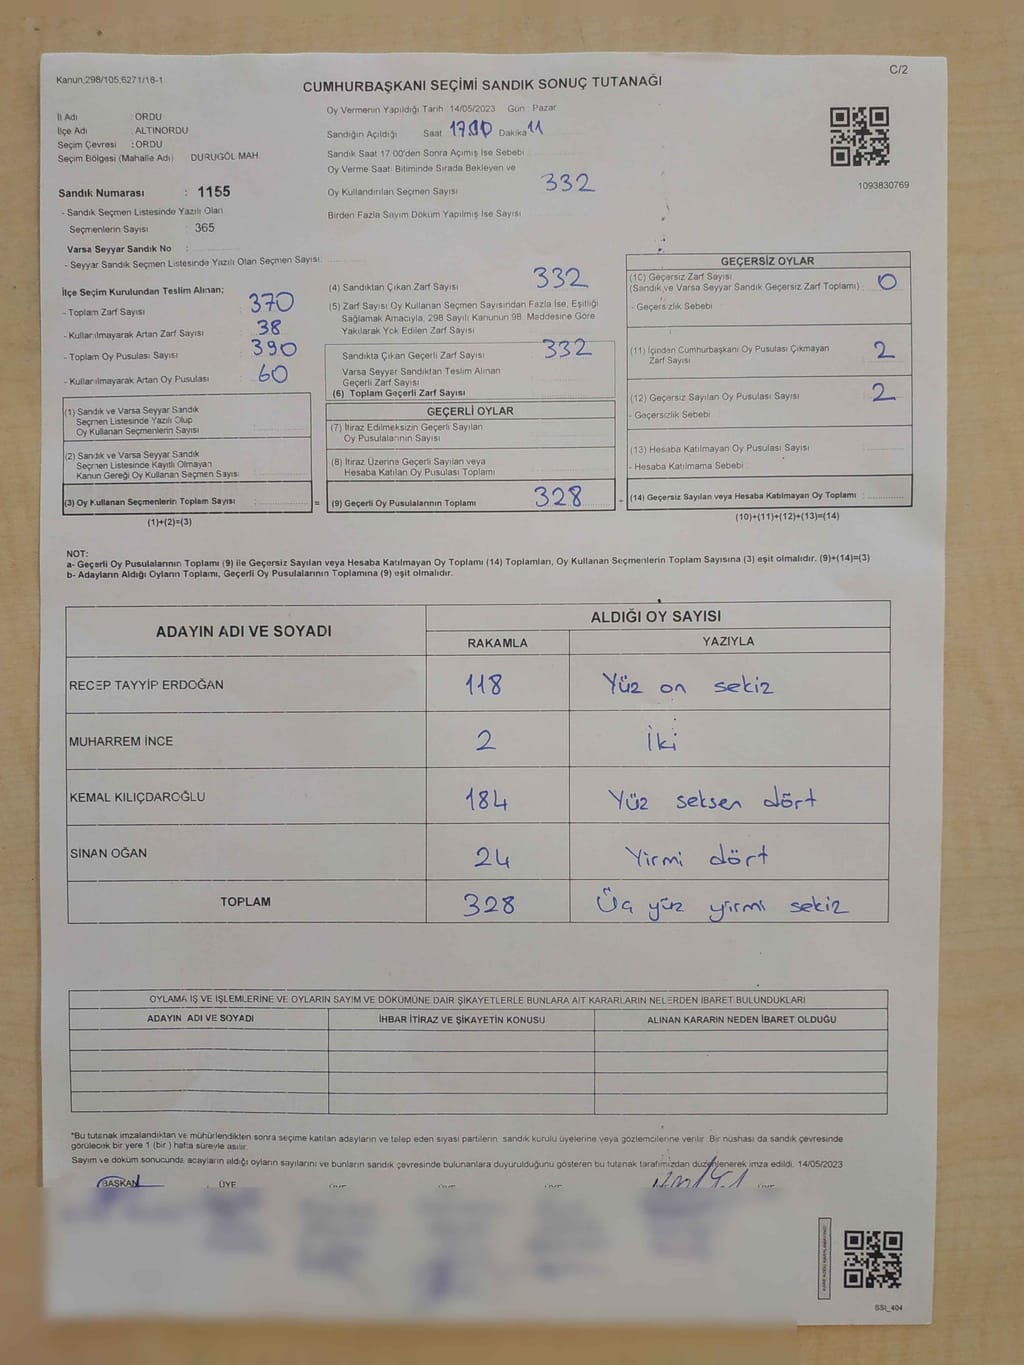 Kanun,298/105,6271/16-1
C/2
CUMHURBAŞKANI SEÇİMİ SANDIK SONUÇ TUTANAĞI
İl Adı : ORDU
İlçe Adı : ALTINORDU
Seçim Çevresi : ORDU
Seçim Bölgesi (Mahalle Adı) DURUGÖL MAH.
Oy Vermenin Yapıldığı Tarih 14/05/2023 Gün : Pazar
Sandığın Açıldığı Saat Dakika 11
Sandık Saat 17.00'den Sonra Açımış İse Sebebi
Oy Verme Saati Bitiminde Sırada Bekleyen ve
Oy Kullandırılan Seçmen Sayısı 332
Birden Fazla Sayım Döküm Yapılmış İse Sayısı
1093830769
Sandık Numarası : 1155
- Sandık Seçmen Listesinde Yazılı Olan
Seçmenlerin Sayısı : 365
Varsa Seyyar Sandık No :
- Seyyar Sandık Seçmen Listesinde Yazılı Olan Seçmen Sayısı:
İlçe Seçim Kurulundan Teslim Alınan;
- Toplam Zarf Sayısı : 370
- Kullanılmayarak Artan Zarf Sayısı : 38
- Toplam Oy Pusulası Sayısı : 390
- Kullanılmayarak Artan Oy Pusulası : 60
(1) Sandık ve Varsa Seyyar Sandık
Seçmen Listesinde Yazılı Olup
Oy Kullanan Seçmenlerin Sayısı
(2) Sandık ve Varsa Seyyar Sandık
Seçmen Listesinde Kayıtlı Olmayan
Kanun Gereği Oy Kullanan Seçmen Sayısı
(3) Oy Kullanan Seçmenlerin Toplam Sayısı :
(1)+(2)=(3)
=
(4) Sandıktan Çıkan Zarf Sayısı 332
(5) Zarf Sayısı Oy Kullanan Seçmen Sayısından Fazla İse, Eşitliği
Sağlamak Amacıyla, 298 Sayılı Kanunun 98. Maddesine Göre
Yakılarak Yok Edilen Zarf Sayısı
Sandıkta Çıkan Geçerli Zarf Sayısı 332
Varsa Seyyar Sandıktan Teslim Alınan
Geçerli Zarf Sayısı
(6) Toplam Geçerli Zarf Sayısı
GEÇERLİ OYLAR
(7) İtiraz Edilmeksizin Geçerli Sayılan
Oy Pusulalarının Sayısı
(8) İtiraz Üzerine Geçerli Sayılan veya
Hesaba Katılan Oy Pusulası Toplamı
(9) Geçerli Oy Pusulalarının Toplamı 328
GEÇERSİZ OYLAR
(10) Geçersiz Zarf Sayısı
(Sandık ve Varsa Seyyar Sandık Geçersiz Zarf Toplamı) : 0
- Geçersizlik Sebebi
(11) İçinden Cumhurbaşkanı Oy Pusulası Çıkmayan
Zarf Sayısı 2
(12) Geçersiz Sayılan Oy Pusulası Sayısı 2
- Geçersizlik Sebebi
(13) Hesaba Katılmayan Oy Pusulası Sayısı
- Hesaba Katılmama Sebebi
(14) Geçersiz Sayılan veya Hesaba Katılmayan Oy Toplamı :
(10)+(11)+(12)+(13)=(14)
NOT:
a- Geçerli Oy Pusulalarının Toplamı (9) ile Geçersiz Sayılan veya Hesaba Katılmayan Oy Toplamı (14) Toplamları, Oy Kullanan Seçmenlerin Toplam Sayısına (3) eşit olmalıdır. (9)+(14)=(3)
b- Adayların Aldığı Oyların Toplamı, Geçerli Oy Pusulalarının Toplamına (9) eşit olmalıdır.
ADAYIN ADI VE SOYADI
ALDIĞI OY SAYISI
RAKAMLA YAZIYLA
RECEP TAYYİP ERDOĞAN 118 Yüz on sekiz
MUHARREM İNCE 2 İki
KEMAL KILIÇDAROĞLU 184 Yüz seksen dört
SİNAN OĞAN 24 Yirmi dört
TOPLAM 328 Üç yüz yirmi sekiz
OYLAMA İŞ VE İŞLEMLERİNE VE OYLARIN SAYIM VE DÖKÜMÜNE DAİR ŞİKAYETLERLE BUNLARA AİT KARARLARIN NELERDEN İBARET BULUNDUKLARI
ADAYIN ADI VE SOYADI İHBAR İTİRAZ VE ŞİKAYETİN KONUSU ALINAN KARARIN NEDEN İBARET OLDUĞU
*Bu tutanak imzalandıktan ve mühürlendikten sonra seçime katılan adayların ve talep eden siyasi partilerin sandık kurulu üyelerine veya gözlemcilerine verilir. Bir nüshası da sandık çevresinde
görülecek bir yere 1 (bir) hafta süreyle asılır.
Sayım ve döküm sonucunda adayların aldığı oyların sayılarını ve bunların sandık çevresinde bulunanlara duyurulduğunu gösteren bu tutanak tarafımızdan düzenlenerek imza edildi. 14/05/2023
BAŞKAN ÜYE
SSI_404